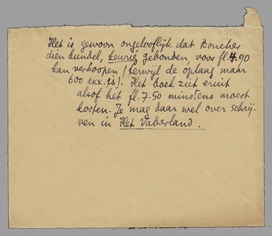 Het is gewoon ongelooflijk dat Boucher
dien bundel, keurig gebonden, voor fl. 4.90
kan verkoopen (terwijl de oplaag maar
600 exx. is). Het boek ziet eruit
alsof het fl. 7.50 minstens moest
kosten. Je mag daar wel over schrij-
ven in Het Vaderland.